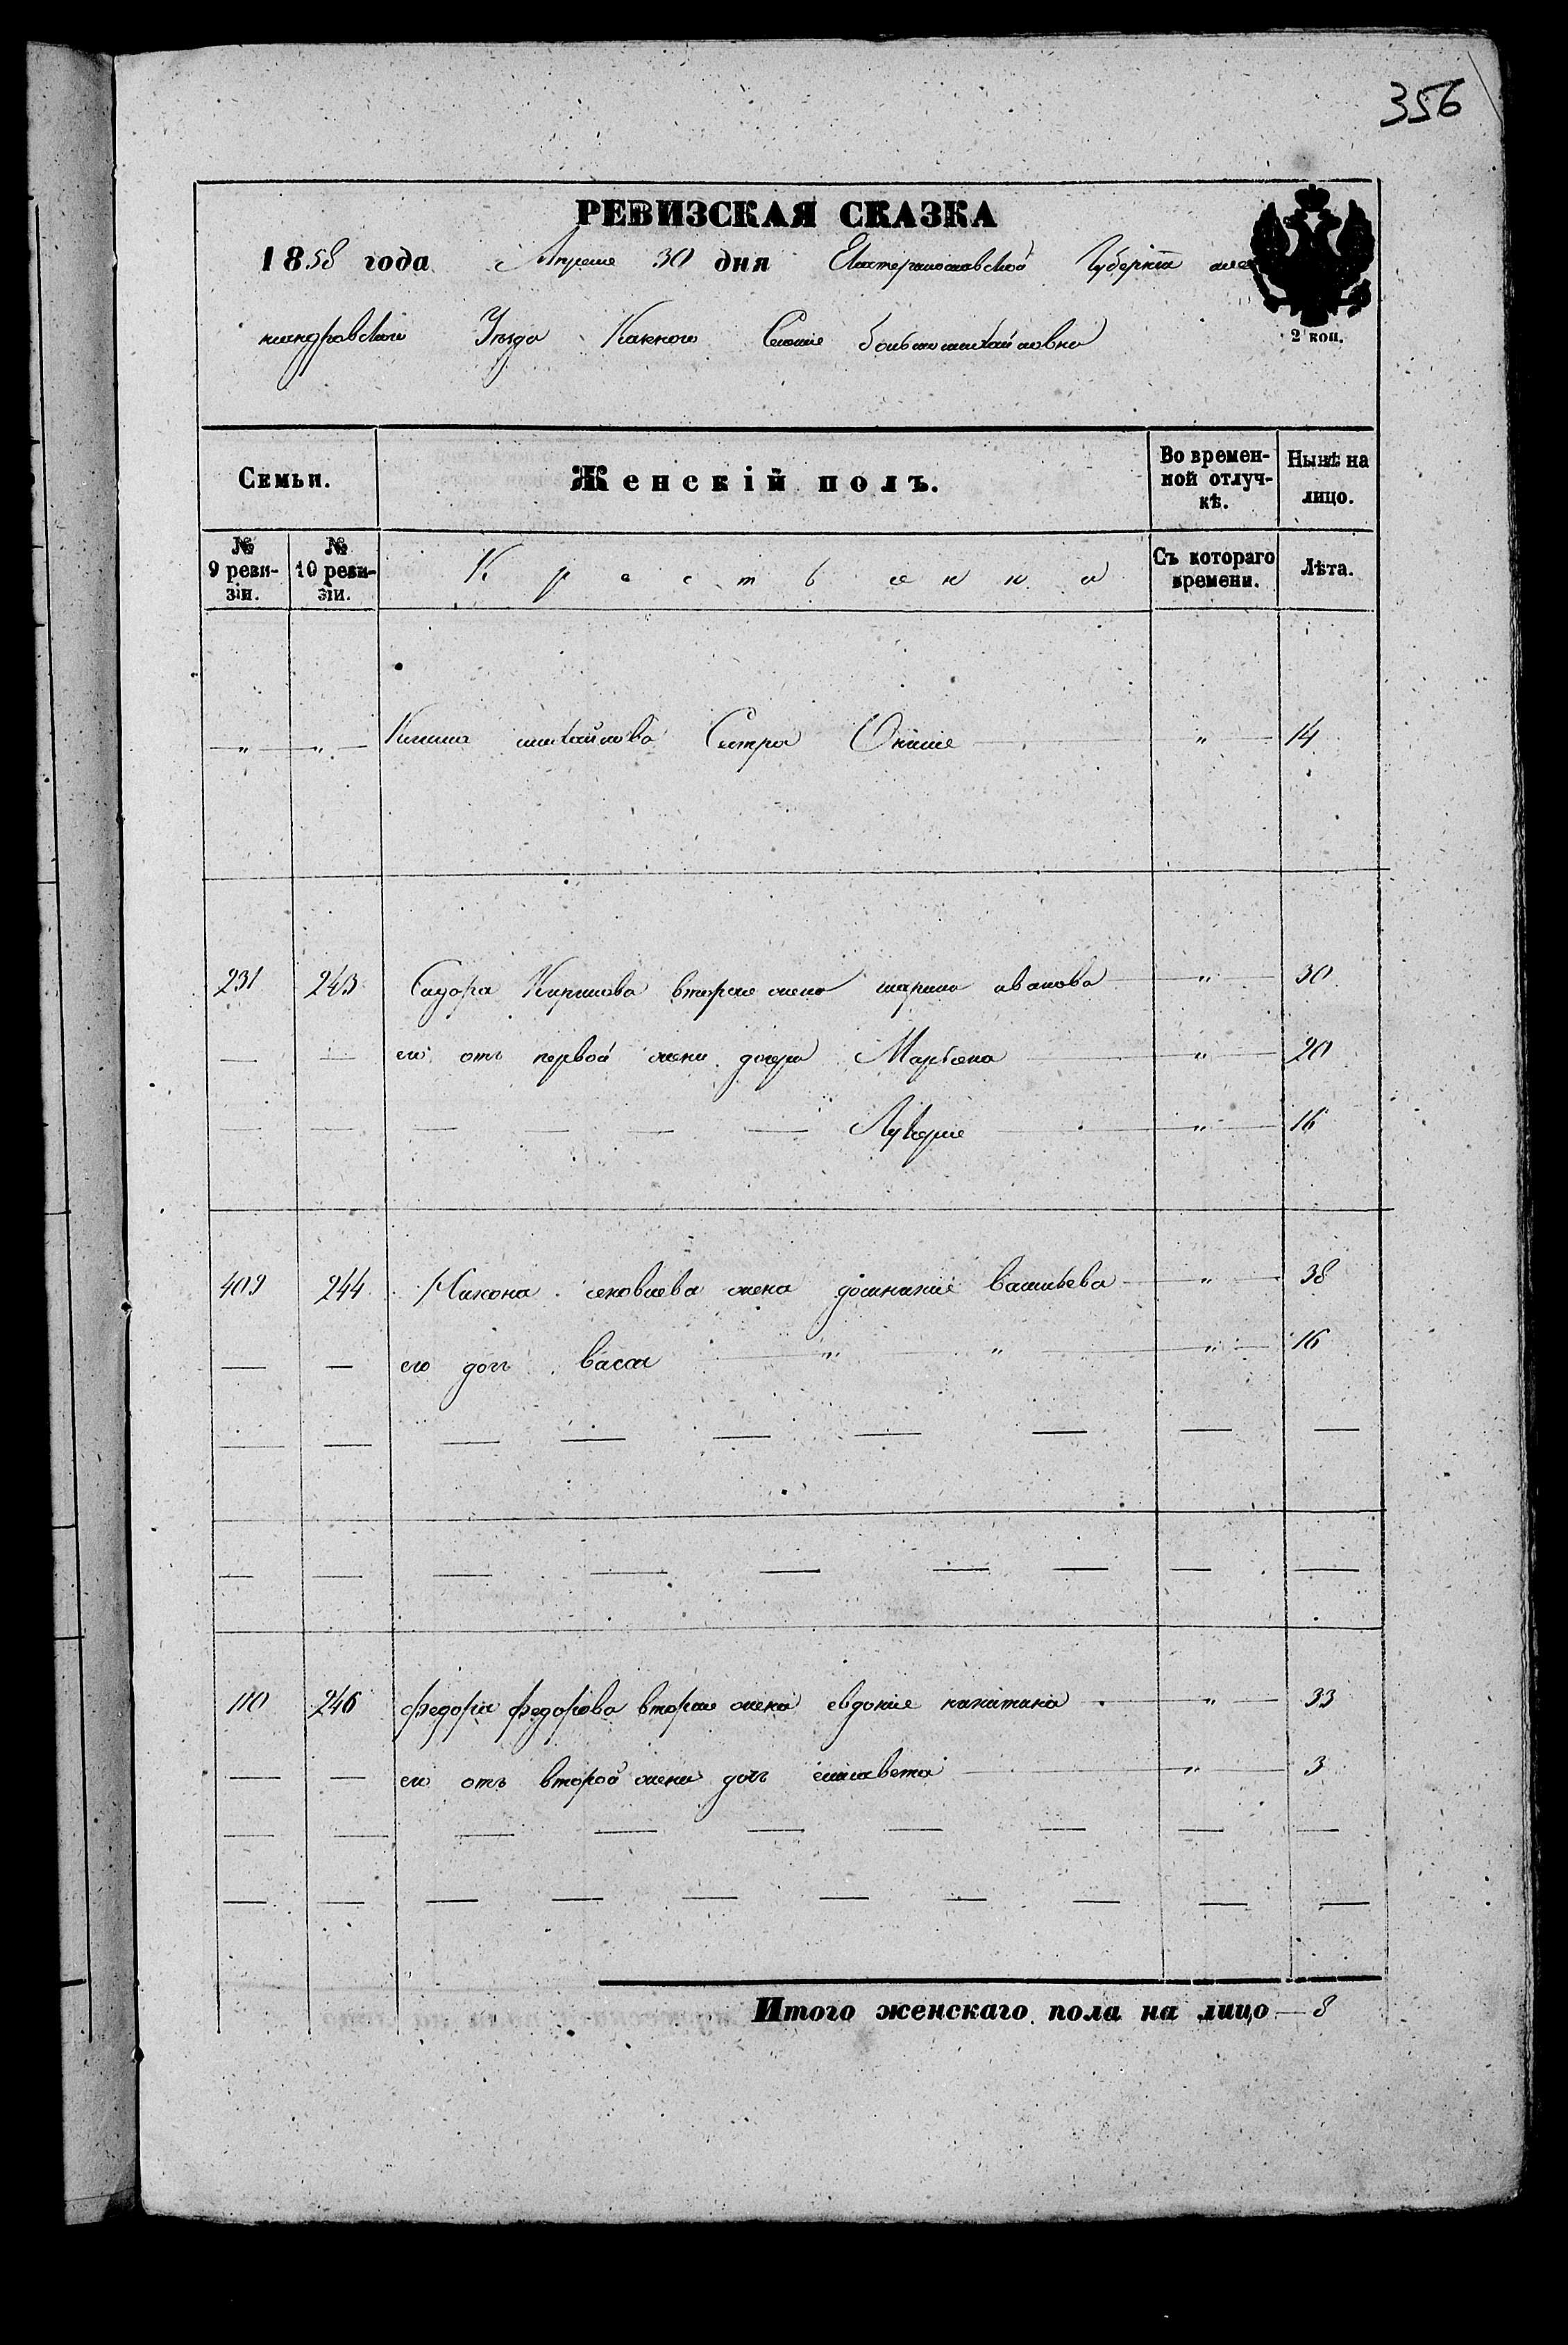 356
РЕВИЗСКАЯ СКАЗКА
1858 года Апреля 30 дня Екатеринославской Губернiи алек
сандровского Уезда Казенного Селения большомихайловки
2 коп.
Семьи. Женскiй полъ. Во временной отлучкѣ. Нынѣ на лицо.
№ 9 ревизiи. № 10 ревизiи. Крестьянка Съ котораго времени. Лѣта.
" " михайлова Сестра " 14
231 243 Сидора Кирилова вторая жена марина иванова " 30
— — его отъ первой жены дочери Марьяна " 20
— — — — — — Лукерия " 16
409 244 жена домникия васильева " 38
— — его дочь васса " " " 16
110 246 федора федорова вторая жена евдокия никитина " 33
— — его отъ второй жены дочь елисавета " 3
Итого женскаго пола на лицо 8